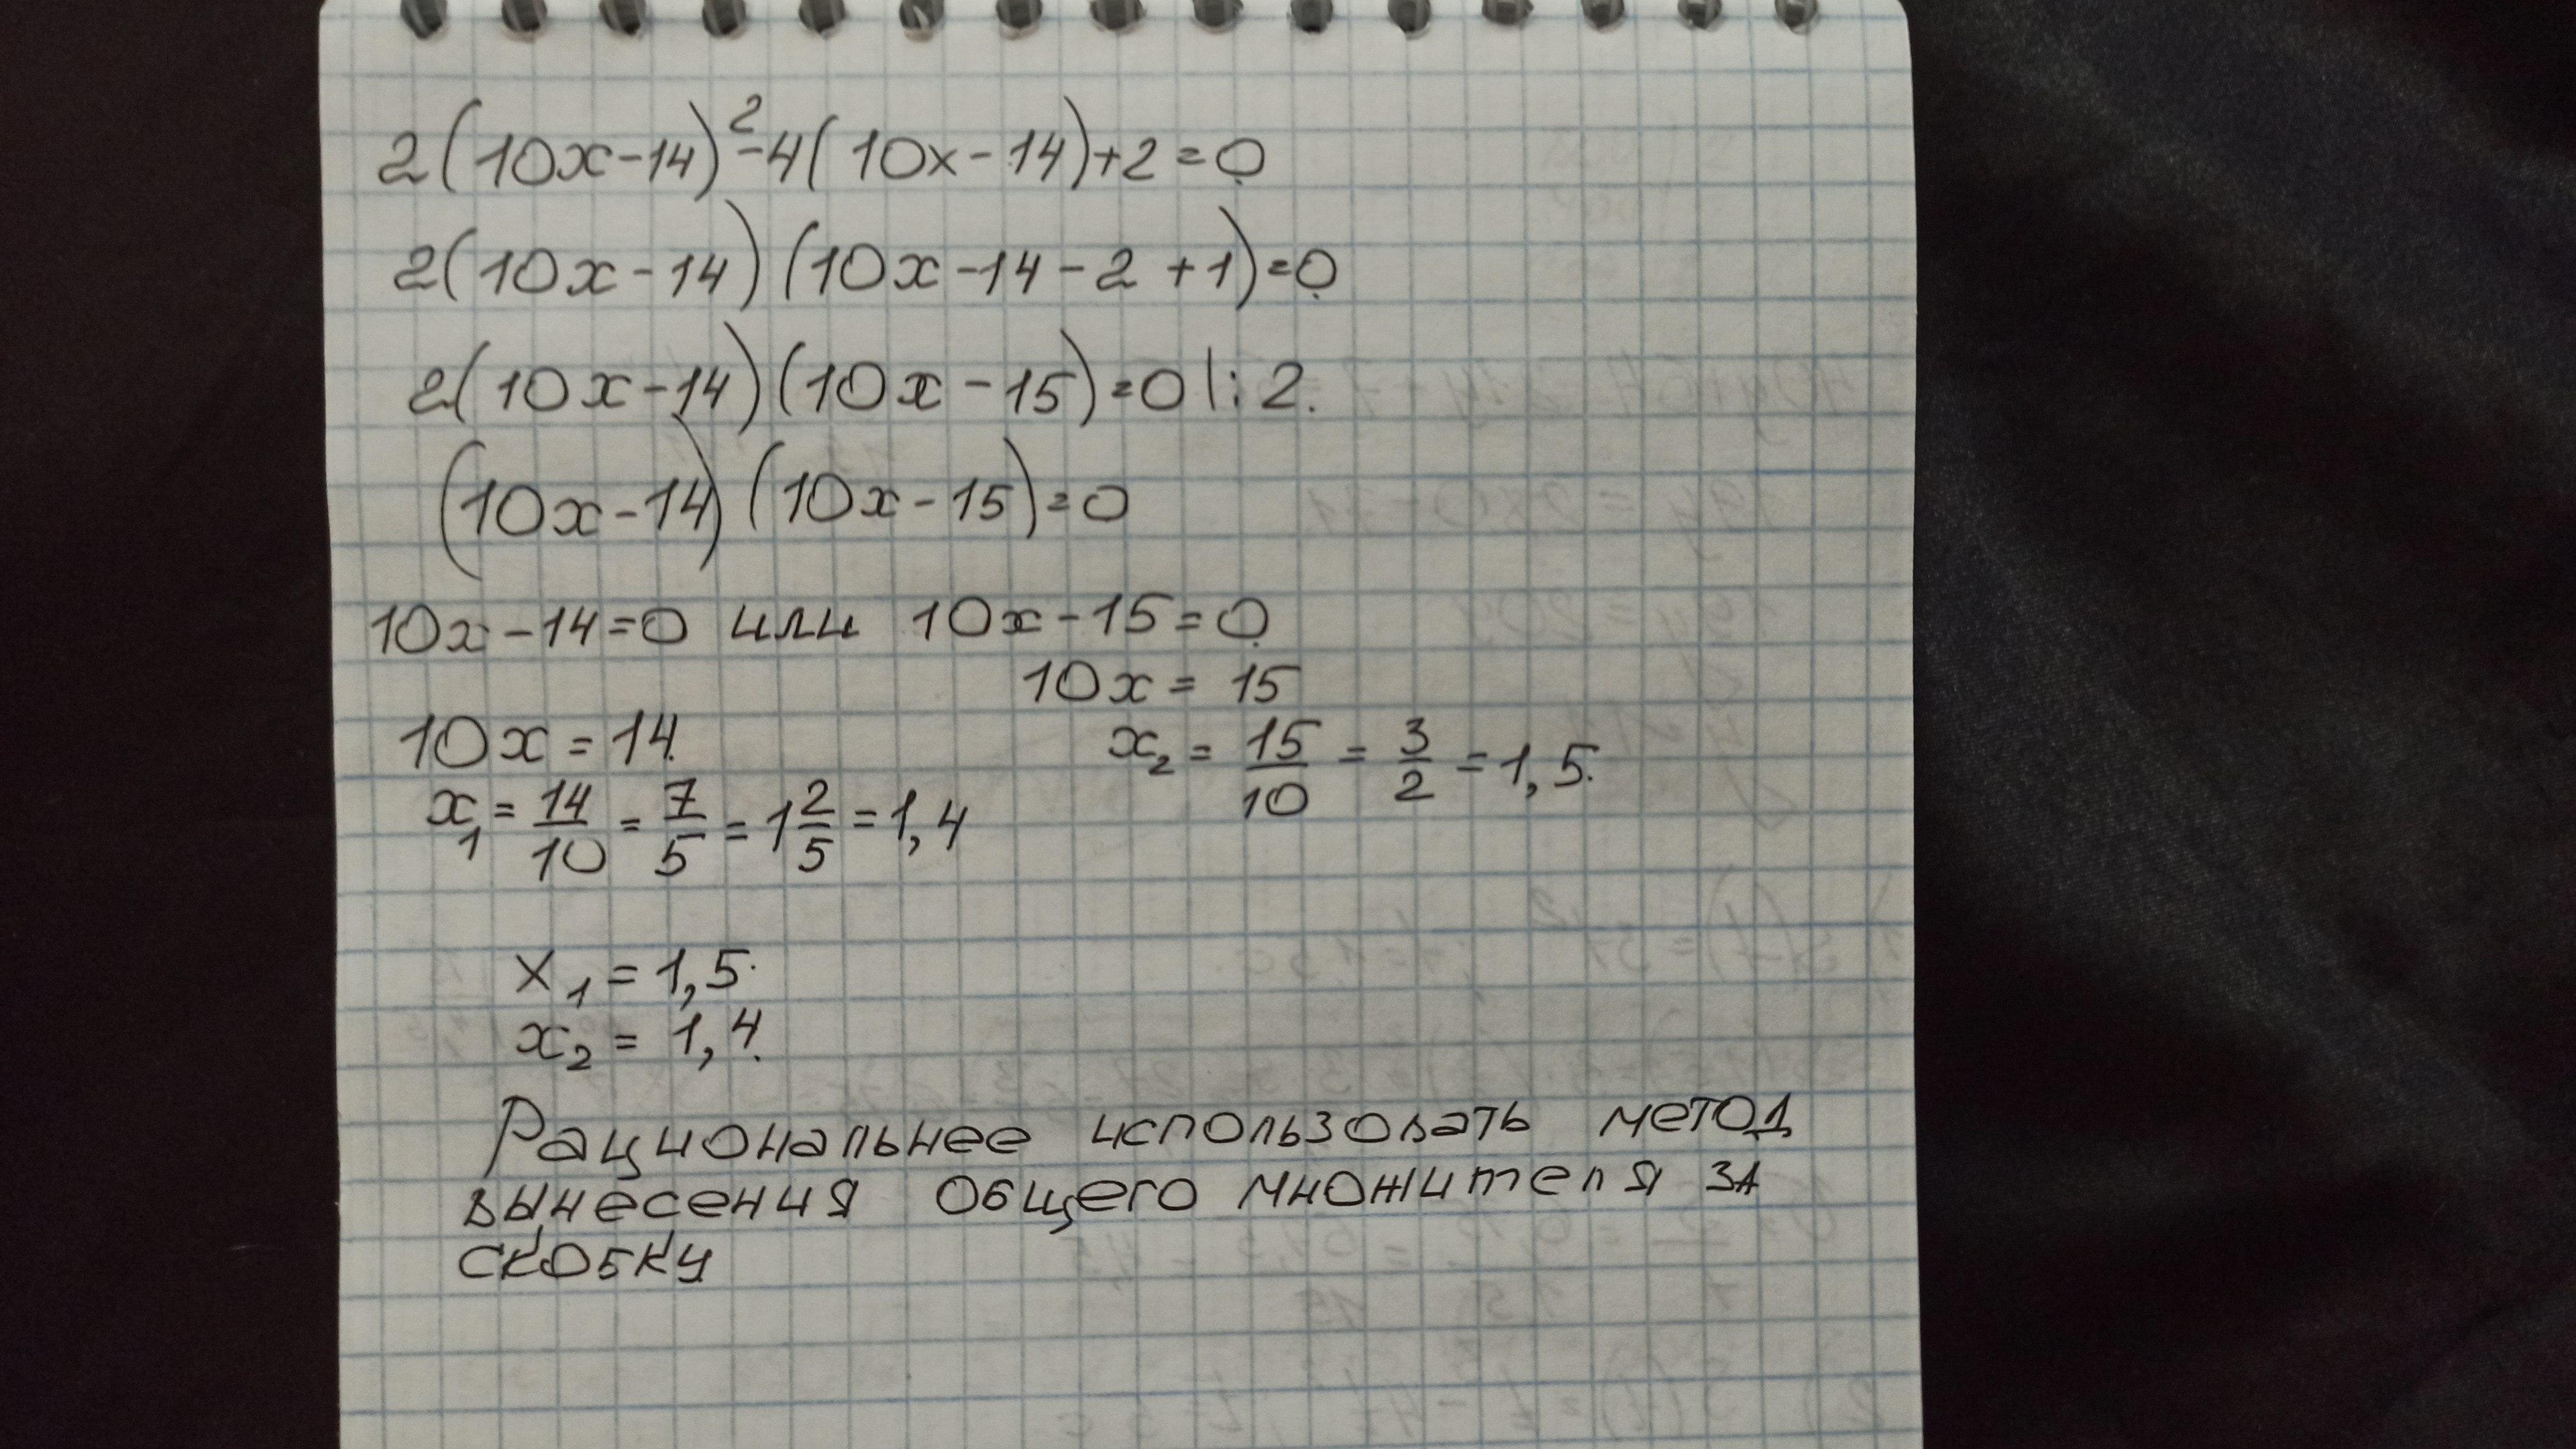 2(10x-14)²-4(10x-14)+2=0
2(10x-14)(10x-14-2+1)=0
2(10x-14)(10x-15)=0|:2.
(10x-14)(10x-15)=0
10x-14=0 или 10x-15=0
10x=15
10x=14.
x₂=15/10=3/2=1,5.
x₁=14/10=7/5=1 2/5=1,4
x₁=1,5.
x₂=1,4.
Рациональнее использовать метод
вынесения общего множителя за
скобку